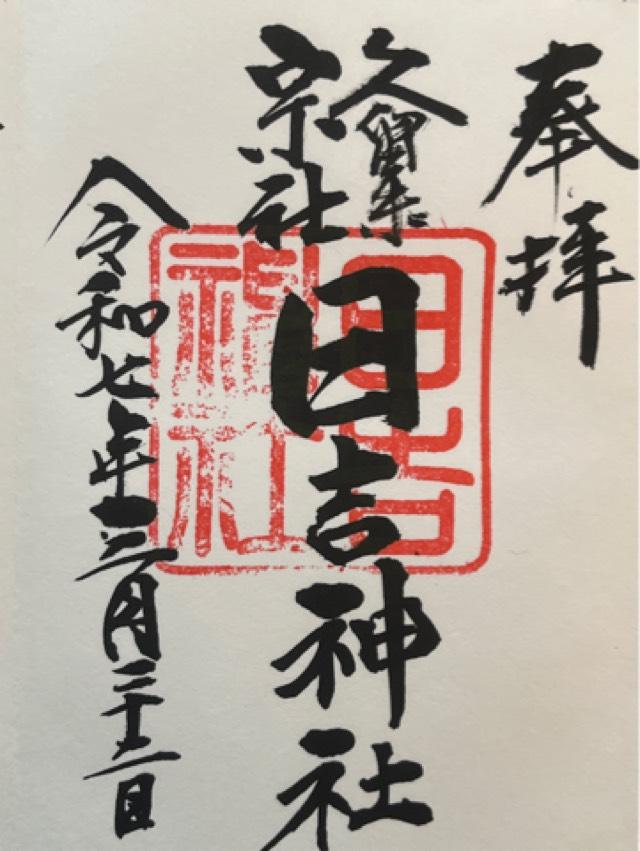 奉拝
久留米
宗社
日吉神社
日吉
神社
令和七年三月二十二日